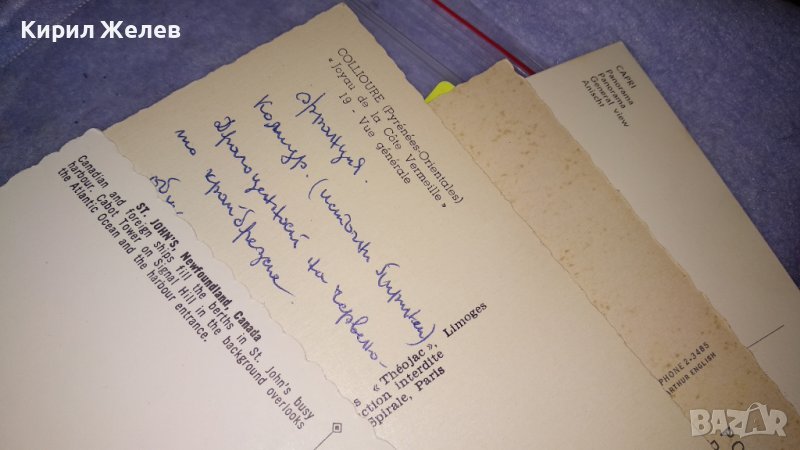 Кирил Желев
COLLIOURE (Pyrénées-Orientales)
« Joyau de la Côte Vermeille »
19 - Vue générale
франция.
Колиур. (источни Пиринеи)
Драгоценност на червено-
то крайбрезие.
« Théojac », Limoges
ction interdite
Spirale, Paris
ST. JOHN'S, Newfoundland, Canada
Canadian and foreign ships fill the berths in St. John's busy
harbour. Cabot Tower on Signal Hill in the background overlooks
the Atlantic Ocean and the harbour entrance.
CAPRI
Panorama
Panorama
General view
Ansicht
PHONE 2-3485
ARTHUR ENGLISH
BAZAR